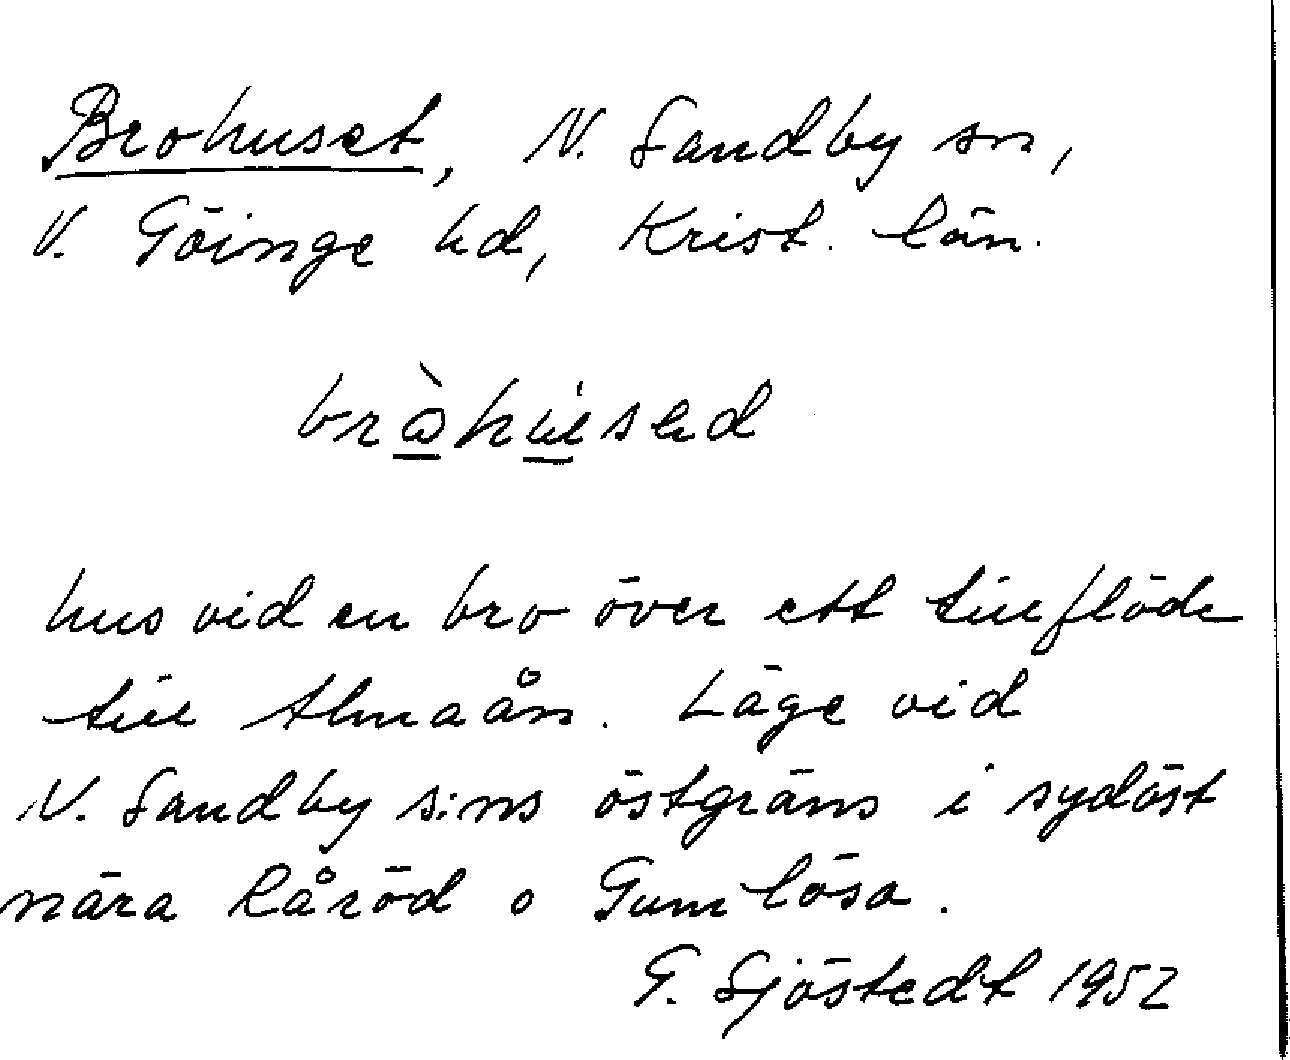 Brohuset, N. Sandby sn,
V. Göinge hd, Krist. län.
hus vid en bro över ett tillflöde
till Almaån. Läge vid
N. Sandby s:ns östgräns i sydöst
nära Råröd o Gumlösa.
G. Sjöstedt 1952